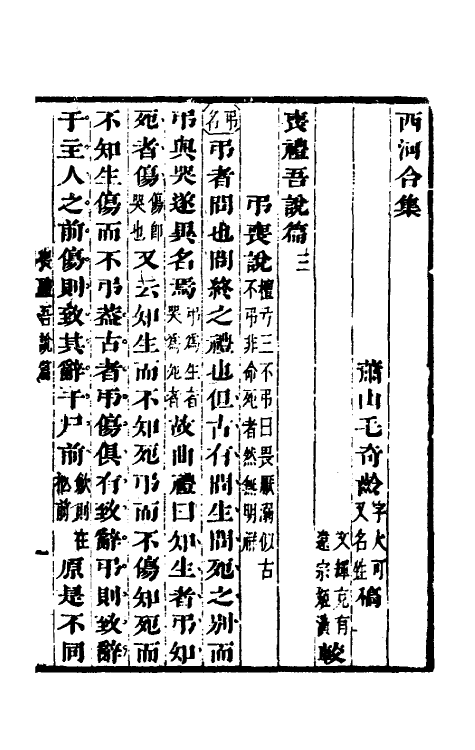 西河合集
蕭山毛奇齡字大可又名甡稿
文輝克有
遠宗姬潢較
喪禮吾說篇二
弔喪說檀弓三不弔曰畏厭溺似古不弔非命死者然無明辭
弔名 弔者問也問終之禮也但古有問生問死之別而
弔與哭遂異名焉弔爲生者哭爲死者故曲禮曰知生者弔知
死者傷傷卽哭也又云知生而不知死弔而不傷知死而
不知生傷而不弔蓋古者弔傷俱有致辭弔則致辭
于主人之前傷則致其辭于尸前歛則在柩前原是不同
喪禮吾說篇
一